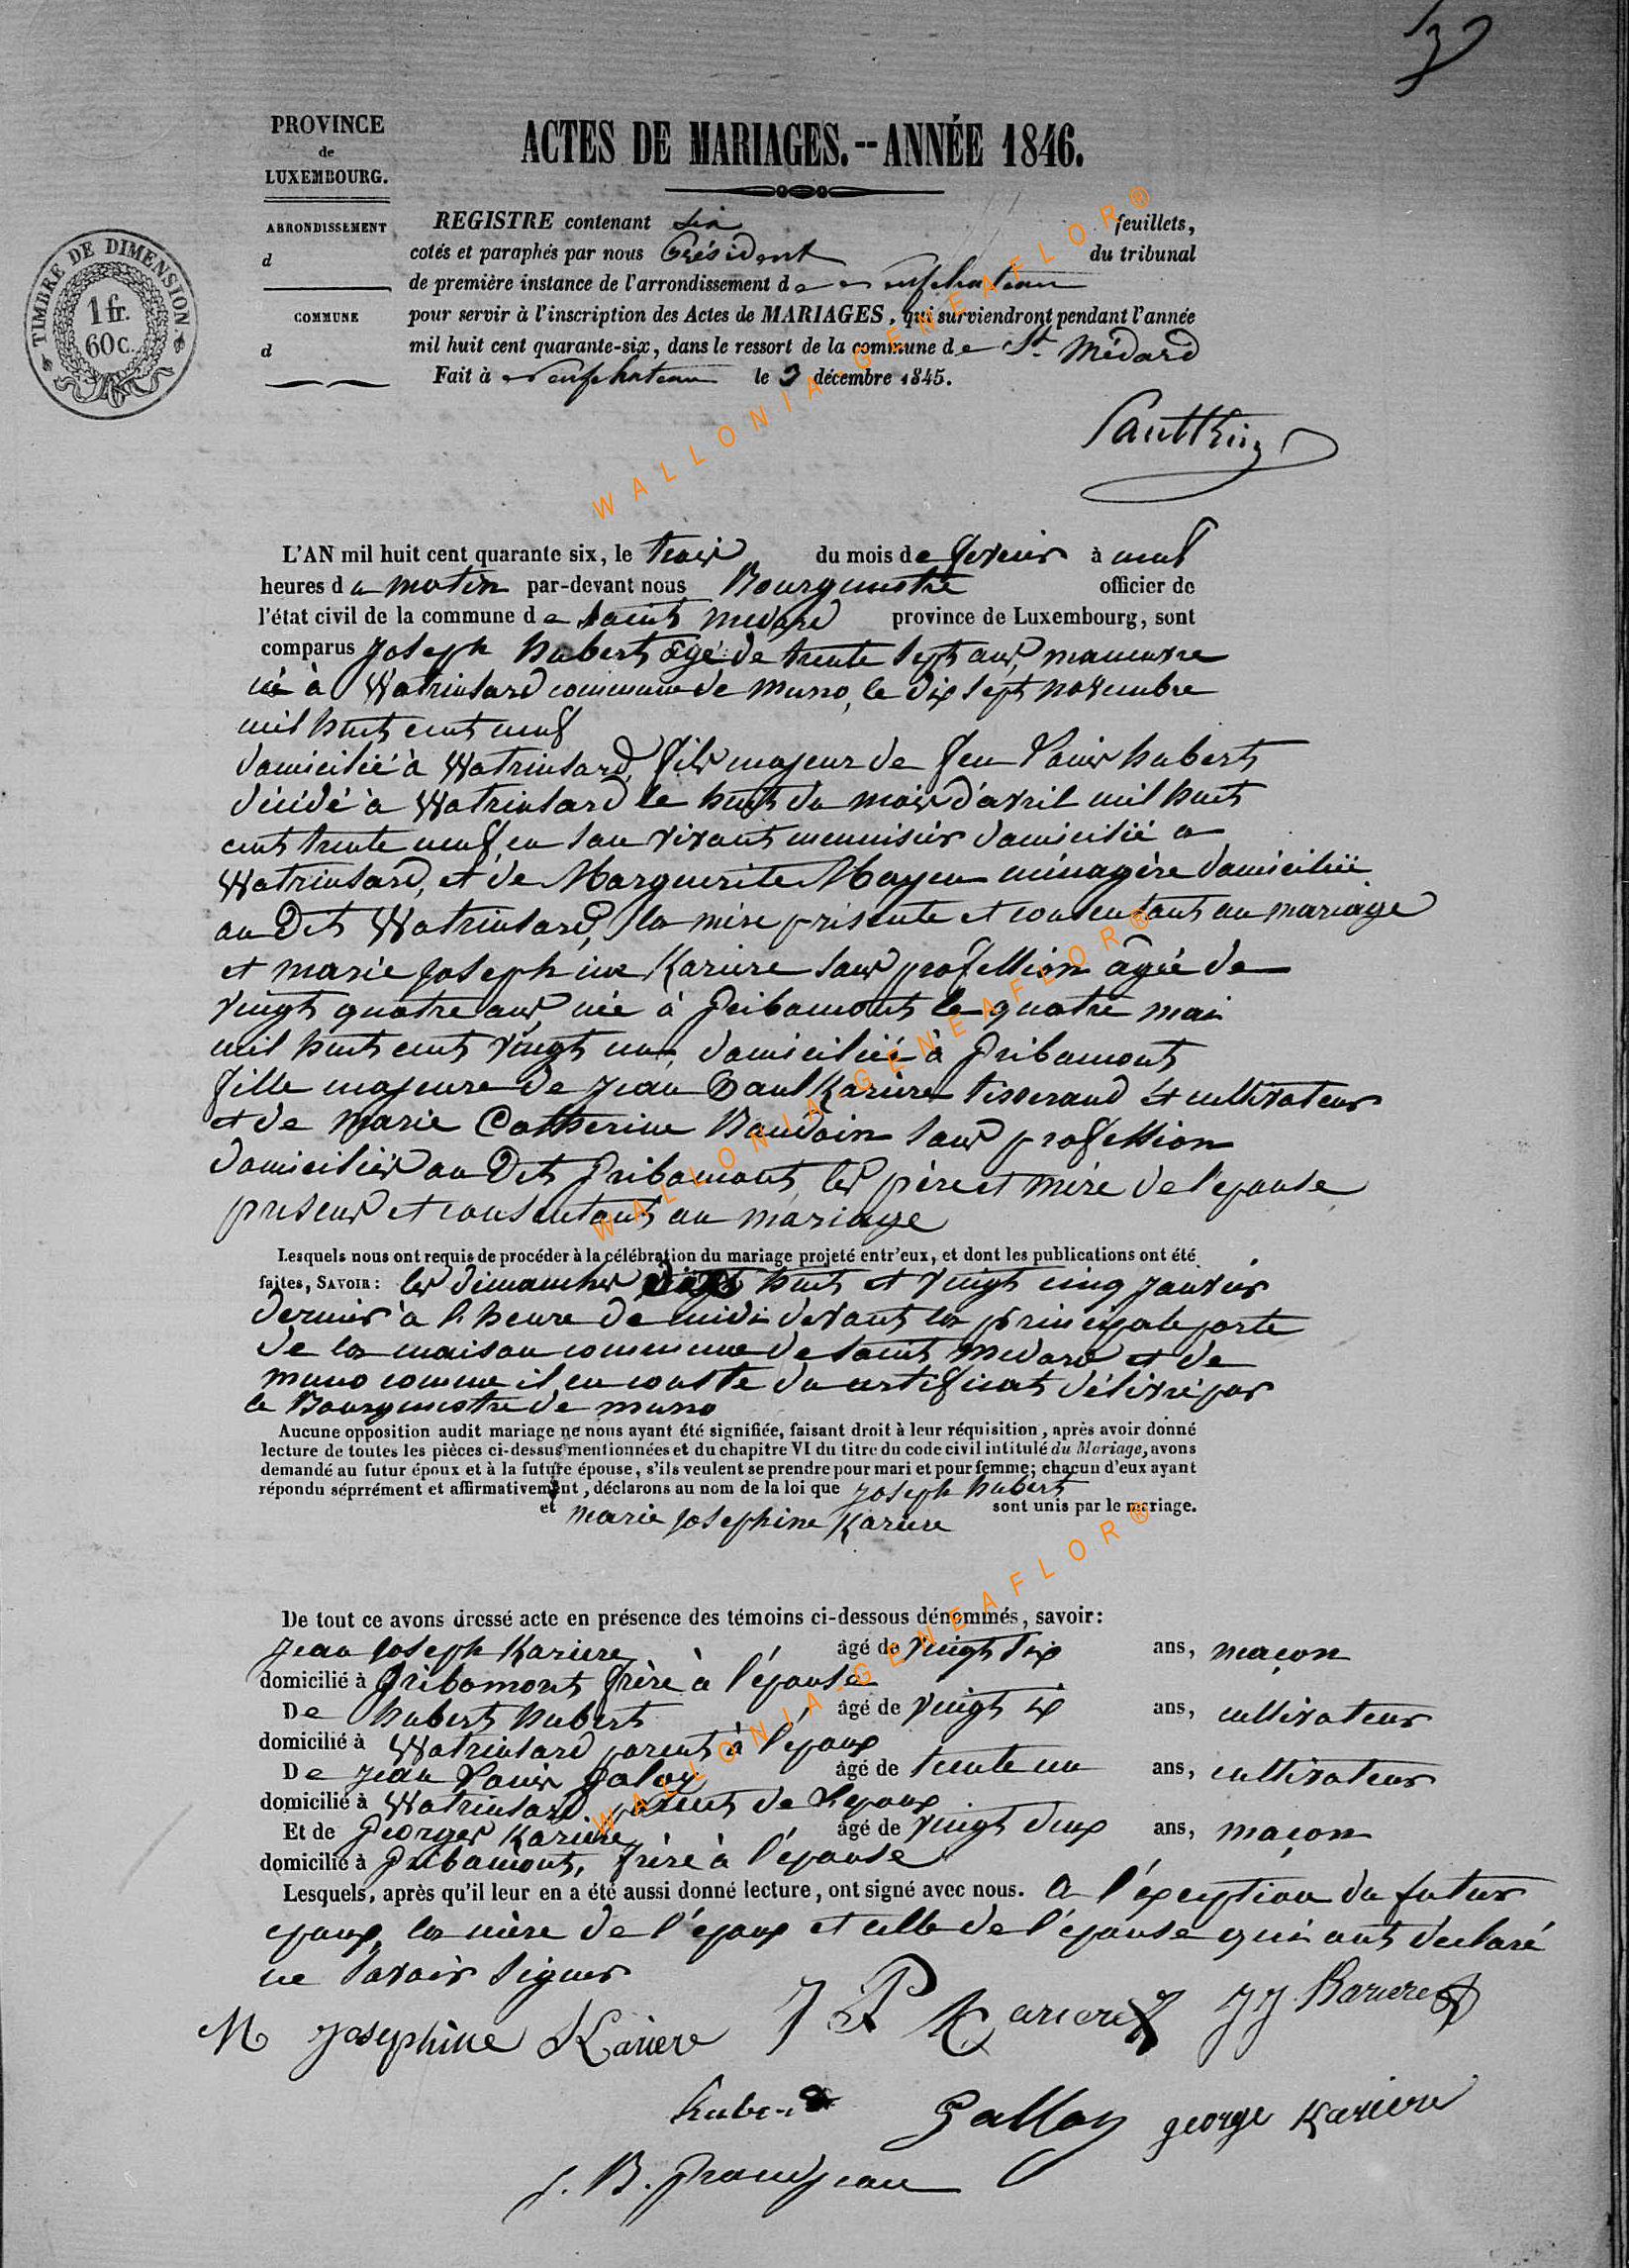 3
PROVINCE
de
LUXEMBOURG.
ACTES DE MARIAGES.--ANNÉE 1846.
ARRONDISSEMENT
d
COMMUNE
d
TIMBRE DE DIMENSION
1 fr.
60 c.
REGISTRE contenant six feuillets,
cotés et paraphés par nous Président du tribunal
de première instance de l'arrondissement de neufchateau
pour servir à l'inscription des Actes de MARIAGES, qui surviendront pendant l'année
mil huit cent quarante-six, dans le ressort de la commune de St Médard
Fait à neufchateau le 3 décembre 1845.
L'AN mil huit cent quarante six, le trois du mois de fevrier à neuf
heures du matin par-devant nous Bourgmestre officier de
l'état civil de la commune de saint medard province de Luxembourg, sont
comparus Joseph hubert âgé de trente sept ans, manuvre
né à Watrinsard commune de muno, le dix sept novembre
mil huit cent neuf
domicilié à Watrinsard, fils majeur de feu Louis hubert
décédé à Watrinsard le huit du mois d'avril mil huit
cent trente neuf, en son vivant menuisier domicilié a
Watrinsard, et de Marguerite Mayen ménagère domiciliée
au dit Watrinsard, la mère présente et consentant au mariage
et marie josephine Kariere sans profession âgée de
vingt quatre ans, née à Gribomont le quatre mai
mil huit cent vingt un, domiciliée à Gribomont
fille majeure de jean Paul Kariere tisserand et cultivateur
et de marie Catherine Baudoin sans profession
domiciliés au dit Gribomont, les père et mère de l'epouse
presens et consentant au mariage
Lesquels nous ont requis de procéder à la célébration du mariage projeté entr'eux, et dont les publications ont été
faites, SAVOIR: les dimanches dix huit et vingt cinq janvier
dernier à l'heure de midi devant la principale porte
de la maison commune de saint medard et de
muno comme il en conste du certificat délivré par
le Bourgmestre de muno
Aucune opposition audit mariage ne nous ayant été signifiée, faisant droit à leur réquisition, après avoir donné
lecture de toutes les pièces ci-dessus mentionnées et du chapitre VI du titre du code civil intitulé du Mariage, avons
demandé au futur époux et à la future épouse, s'ils veulent se prendre pour mari et pour femme; chacun d'eux ayant
répondu séprrément et affirmativement, déclarons au nom de la loi que joseph hubert
et marie josephine Kariere sont unis par le mariage.
De tout ce avons dressé acte en présence des témoins ci-dessous dénommés, savoir:
Jean joseph Kariere âgé de vingt six ans, maçon
domicilié à Gribomont frère à l'épouse
De hubert hubert âgé de vingt six ans, cultivateur
domicilié à Watrinsard parent à l'époux
De jean Louis Galoy âgé de trente un ans, cultivateur
domicilié à Watrinsard parent de l'epoux
Et de Georges Kariere âgé de vingt deux ans, maçon
domicilié à Gribomont, frère à l'épouse
Lesquels, après qu'il leur en a été aussi donné lecture, ont signé avec nous. A l'éxception du futur
epoux, la mère de l'époux et celle de l'épouse qui ont declaré
ne savoir signer
M Josephine Kariere J P Kariere J J Kariere
hubert Galloy george Kariere
J. B. Grandjean
WALLONIA-GENEAFLOR®
WALLONIA-GENEAFLOR®
WALLONIA-GENEAFLOR®